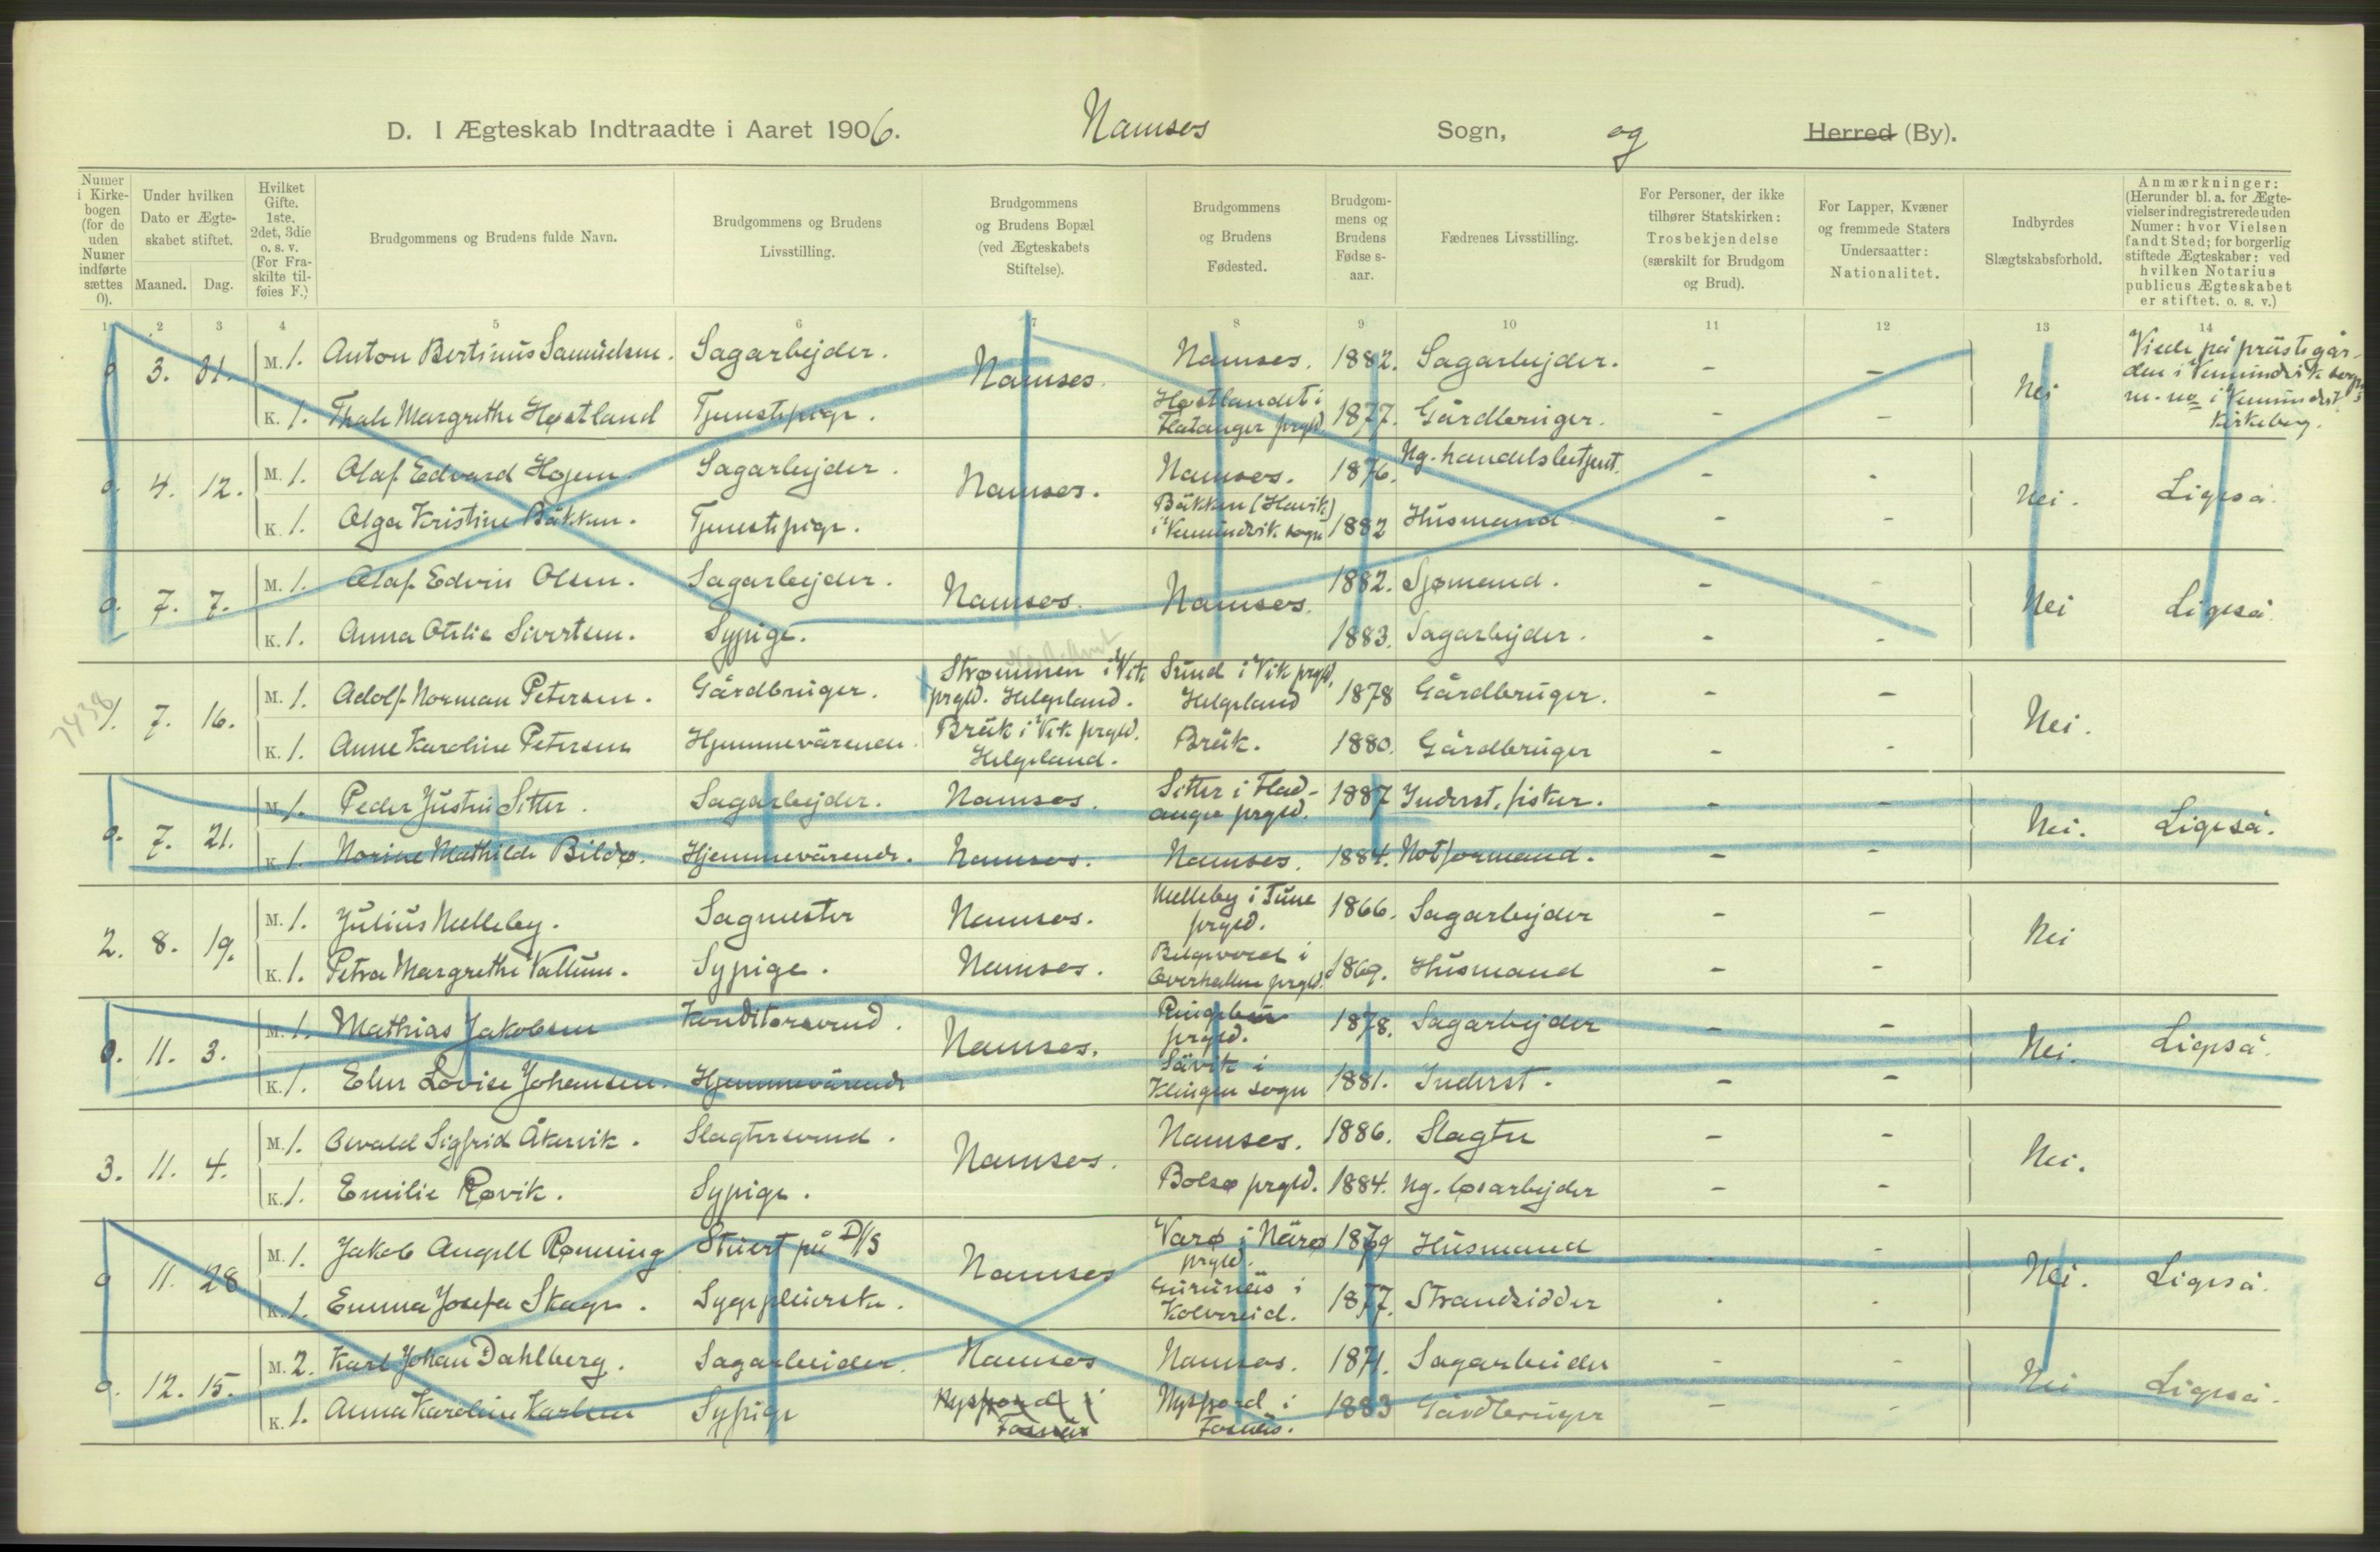 D. I Ægteskab Indtraadte i Aaret 1906. Namsos Sogn, og Herred (By).
Numer i Kirkebogen (for de uden Numer indførte sættes 0).
Under hvilken Dato er Ægteskabet stiftet. Maaned. Dag.
Hvilket Gifte. 1ste, 2det, 3die o. s. v. (For Fraskilte tilføies F.)
Brudgommens og Brudens fulde Navn.
Brudgommens og Brudens Livsstilling.
Brudgommens og Brudens Bopæl (ved Ægteskabets Stiftelse).
Brudgommens og Brudens Fødested.
Brudgommens og Brudens Fødselsaar.
Fædrenes Livsstilling.
For Personer, der ikke tilhører Statskirken: Trosbekjendelse (særskilt for Brudgom og Brud).
For Lapper, Kvæner og fremmede Staters Undersaatter: Nationalitet.
Indbyrdes Slægtskabsforhold.
Anmærkninger: (Herunder bl. a. for Ægtevielser indregistrerede uden Numer: hvor Vielsen fandt Sted; for borgerlig stiftede Ægteskaber: ved hvilken Notarius publicus Ægteskabet er stiftet, o. s. v.)
1 2 3 4 5 6 7 8 9 10 11 12 13 14
0 3. 31. M. 1. Anton Bertinus Samuelsen. Sagarbejder. Namsos. Namsos. 1882. Sagarbejder. - - Nei Viede på præstegården i Vemundvik sogn
K. 1. Thale Margrethe Høstland Tjenestepige. Høstlandet i Flatanger prgld. 1877. Gårdbruger. - - i Vemundvik's Kirkebog.
0. 4. 12. M. 1. Olaf Edvard Hojem. Sagarbejder. Namsos. Namsos. 1876. Ng. handelsbetjent. - - Nei. Ligeså.
K. 1. Olga Kristine Bækken. Tjenestepige. Bækken (Havik) i Vemundvik sogn 1882 Husmand - -
0. 7. 7. M. 1. Olaf Edvin Olsen. Sagarbejder. Namsos. Namsos. 1882. Sjømand. - - Nei Ligeså.
K. 1. Anna Otilie Sivertsen. Sypige. 1883. Sagarbejder. - -
7438
1. 7. 16. M. 1. Adolf Norman Petersen. Gårdbruger. Strømmen i Vik prgld. Helgeland. Sund i Vik prgld. Helgeland 1878 Gårdbruger. - - Nei.
K. 1. Anne Karoline Petersen Hjemmeværende. i Vik prgld. Helgeland. 1880. Gårdbruger - -
0. 7. 21. M. 1. Peder Justin Sitter. Sagarbejder. Namsos. Sitter i Fladanger prgld. 1887 Inderst, fisker. - - Nei. Ligeså.
K. 1. Norine Mathilde Bildø. Hjemmeværende. Namsos. Namsos. 1884. Notformand. - -
2. 8. 19. M. 1. Julius Nelleby. Sagmester Namsos. Nelleby i Tune prgld. 1866. Sagarbejder - - Nei
K. 1. Petra Margrethe Vallum. Sypige. Namsos. i Overhallen prgld. 1869. Husmand - -
0. 11. 3. M. 1. Mathias Jakobsen Konditorsvend. Namsos. Ringebu prgld. 1878. Sagarbejder - - Nei. Ligeså.
K. 1. Elen Lovise Johansen. Hjemmeværende Sævik i Klingen sogn 1881. Inderst. - -
3. 11. 4. M. 1. Osvald Sigfrid Åkervik. Slagtersvend. Namsos. Namsos. 1886. Slagter - - Nei.
K. 1. Emilie Røvik. Sypige. Bolsø prgld. 1884. Ng. løsarbejder - -
0 11. 28 M. 1. Jakob Angell Rønning Stuert på D/S Namsos Varø i Nærø prgld. 1879 Husmand - - Nei. Ligeså.
K. 1. Emma Josefa Skage. Sygepleierske. i Kolvereid. 1877. Strandsidder - -
0. 12. 15. M. 2. Karl Johan Dahlberg. Sagarbeider. Namsos Namsos. 1871. Sagarbeider - - Nei Ligeså.
K. 1. Anna Karoline Karlsen Sypige Nysfjord i Fosnæs Nysfjord i Fosnæs. 1883 Gårdbruger - -